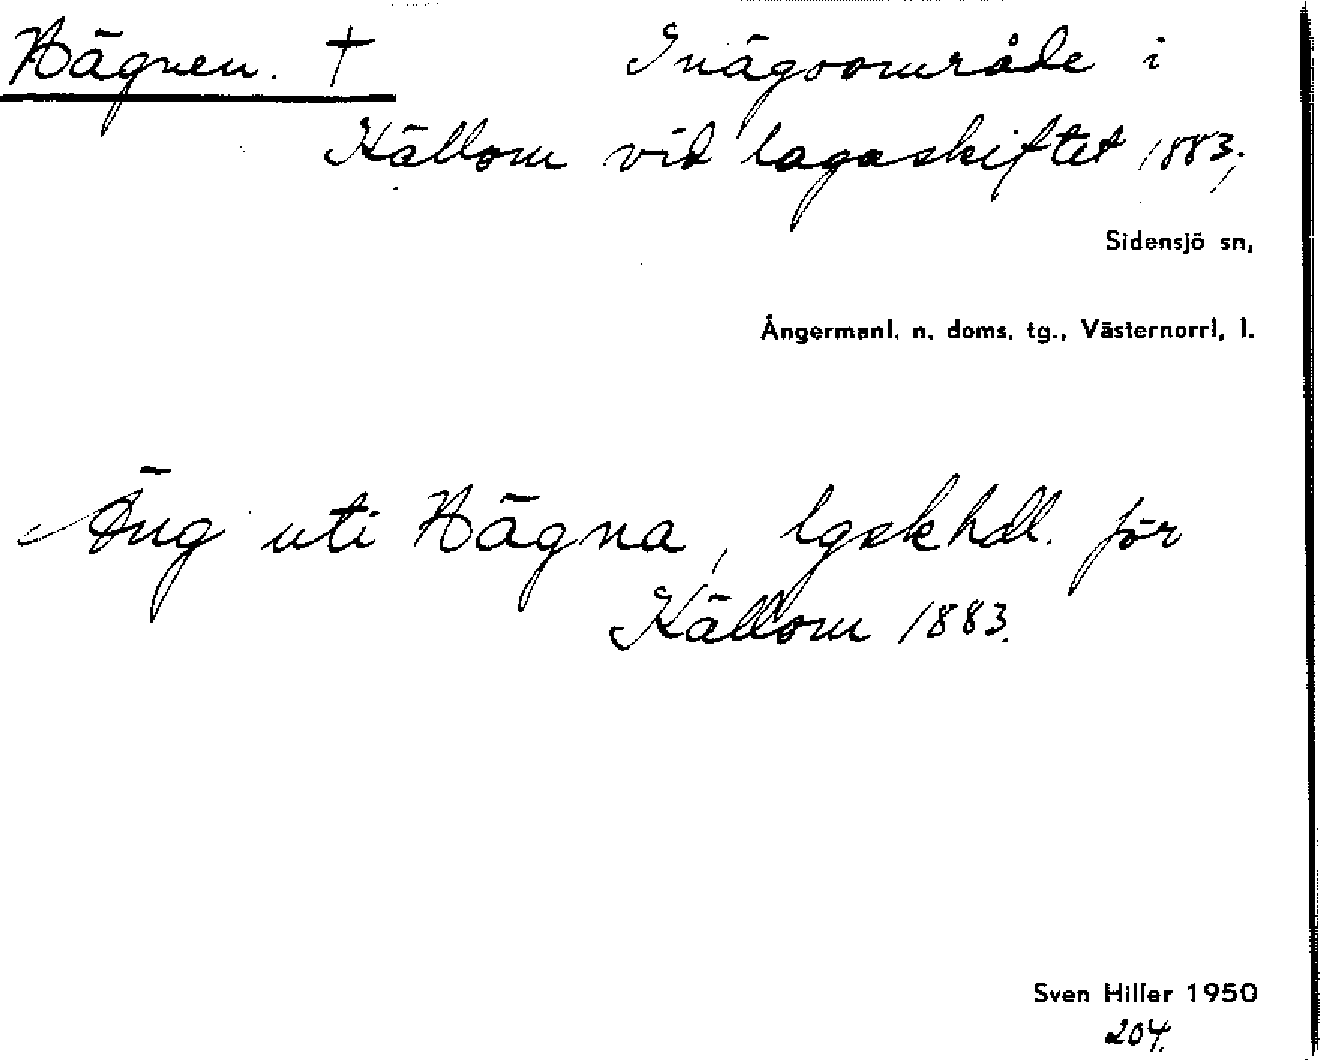 Hägnen. † Inägoområde i
Källom vid lagaskiftet 1883;
Sidensjö sn,
Ångermanl. n. doms. tg., Västernorrl. l.
Äng uti Hägna, lgskhdl. för
Källom 1883.
Sven Hiller 1950
204.